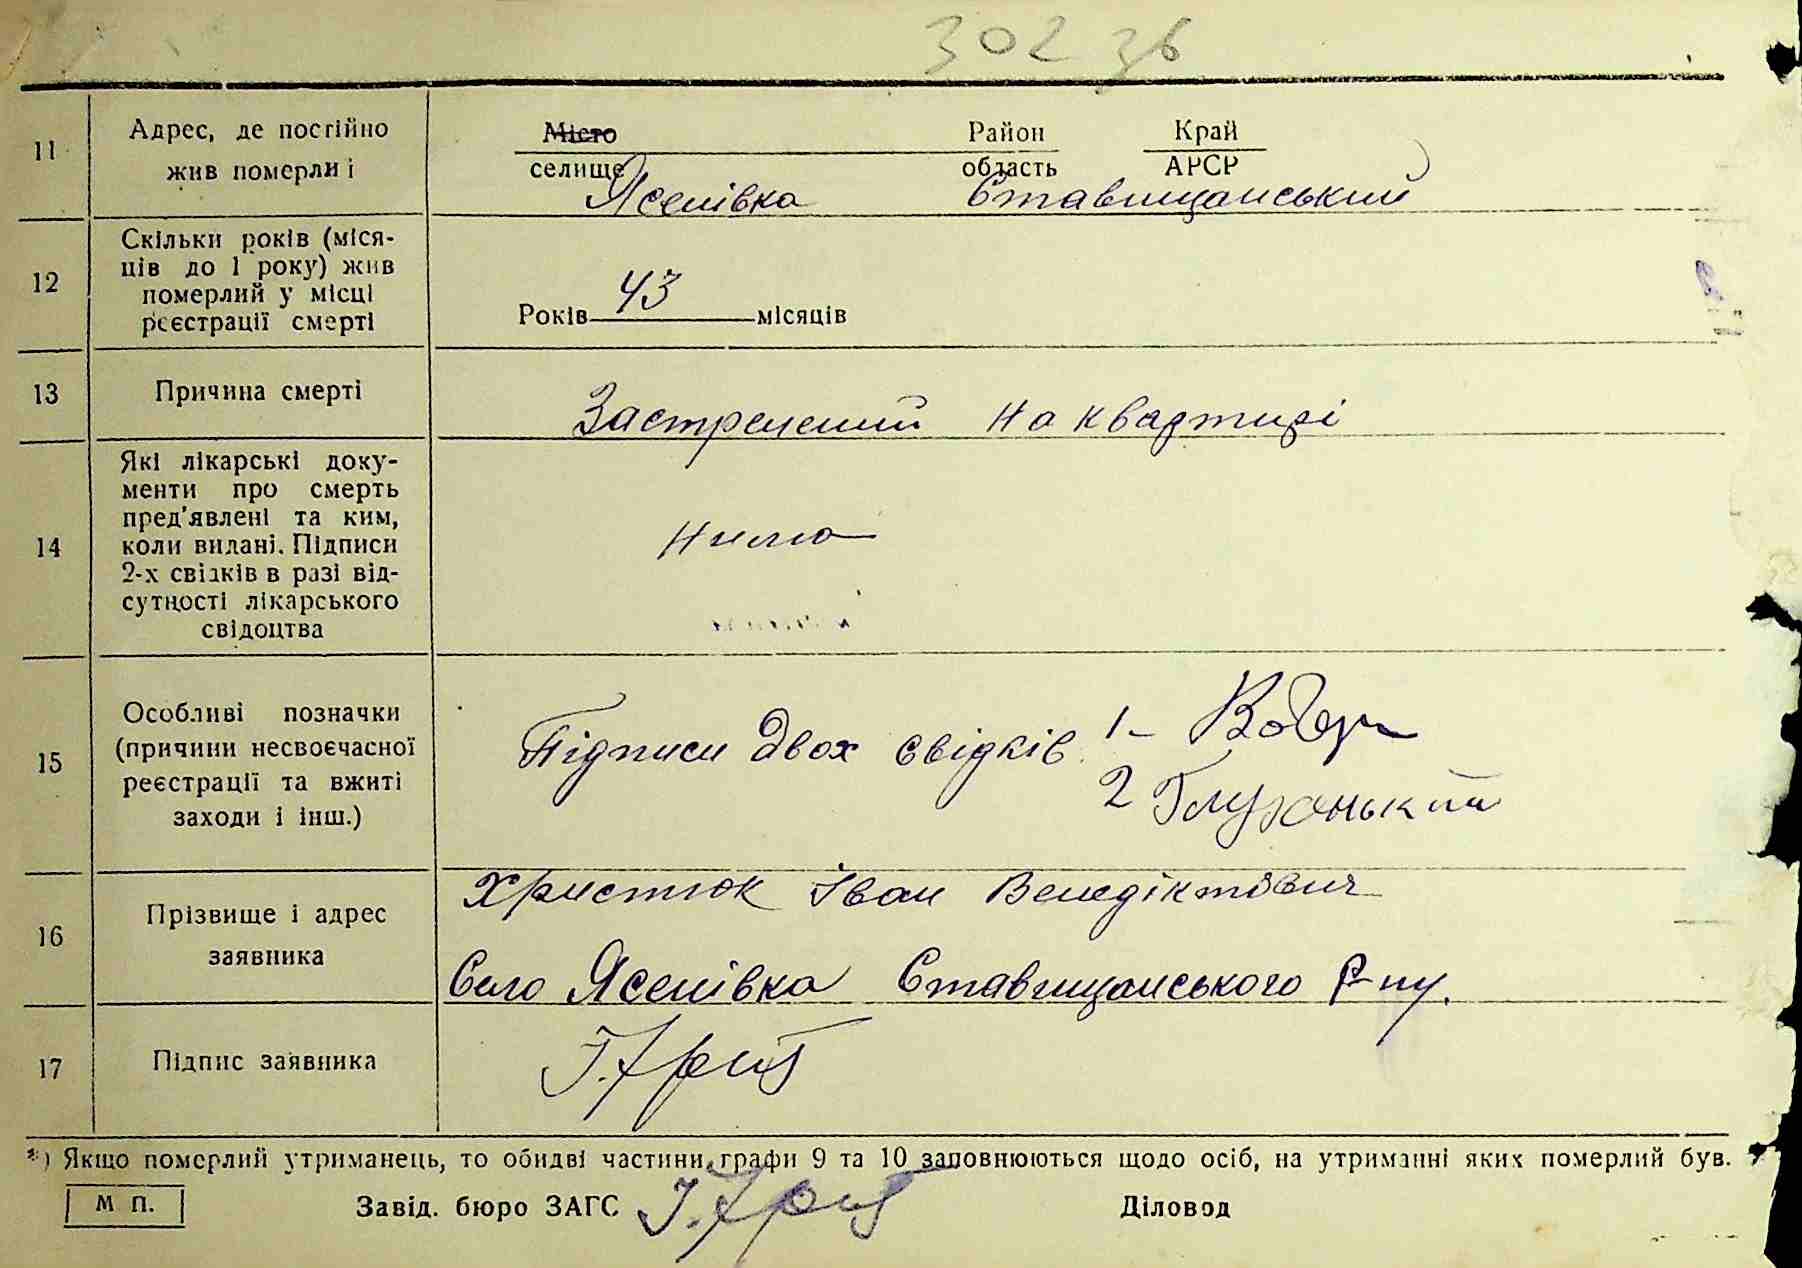 302 зв
11
Адрес, де постійно
жив померлиі
Місто Район Край
селище область АРСР
Ясенівка Ставищанський
12
Скільки років (міся-
ців до 1 року) жив
померлий у місці
реєстрації смерті
Років 43 місяців
13
Причина смерті
Застрелений на квартирі
14
Які лікарські доку-
менти про смерть
пред'явлені та ким,
коли видані. Підписи
2-х свідків в разі від-
сутності лікарського
свідоцтва
Нима
15
Особливі позначки
(причини несвоєчасної
реєстрації та вжиті
заходи і інш.)
Підписи двох свідків 1-
2
16
Прізвище і адрес
заявника
Христюк Іван Венедіктович
Село Ясенівка Ставищанського р-ну.
17
Підпис заявника
*) Якщо померлий утриманець, то обидві частини графи 9 та 10 заповнюються щодо осіб, на утриманні яких померлий був.
М П. Завід. бюро ЗАГС Діловод